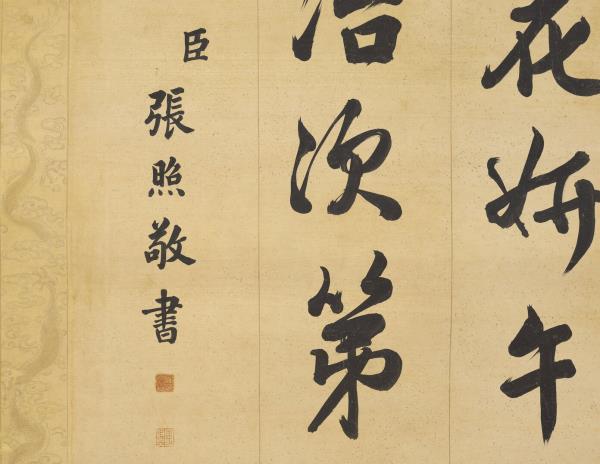 花妍午
次第
臣張照敬書